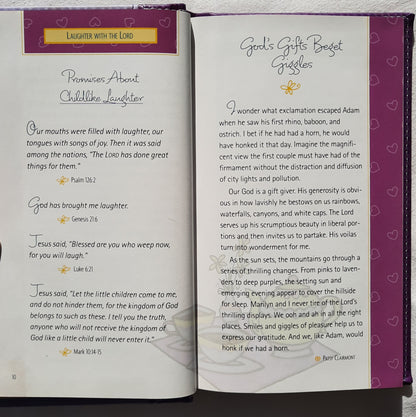 LAUGHTER WITH THE LORD
Promises About
Childlike Laughter
Our mouths were filled with laughter, our
tongues with songs of joy. Then it was said
among the nations, "The LORD has done great
things for them."
Psalm 126:2
God has brought me laughter.
Genesis 21:6
Jesus said, "Blessed are you who weep now,
for you will laugh."
Luke 6:21
Jesus said, "Let the little children come to me,
and do not hinder them, for the kingdom of God
belongs to such as these. I tell you the truth,
anyone who will not receive the kingdom of
God like a little child will never enter it."
Mark 10:14-15
10
God's Gifts Beget
Giggles
I wonder what exclamation escaped Adam
when he saw his first rhino, baboon, and
ostrich. I bet if he had had a horn, he would
have honked it that day. Imagine the magnif-
icent view the first couple must have had of the
firmament without the distraction and diffusion
of city lights and pollution.
Our God is a gift giver. His generosity is obvi-
ous in how lavishly he bestows on us rainbows,
waterfalls, canyons, and white caps. The Lord
serves up his scrumptious beauty in liberal por-
tions and then invites us to partake. His voilas
turn into wonderment for me.
As the sun sets, the mountains go through a
series of thrilling changes. From pinks to laven-
ders to deep purples, the setting sun and
emerging evening appear to cover the hillside
for sleep. Marilyn and I never tire of the Lord's
thrilling displays. We ooh and ah in all the right
places. Smiles and giggles of pleasure help us to
express our gratitude. And we, like Adam, would
honk if we had a horn.
PATSY CLAIRMONT